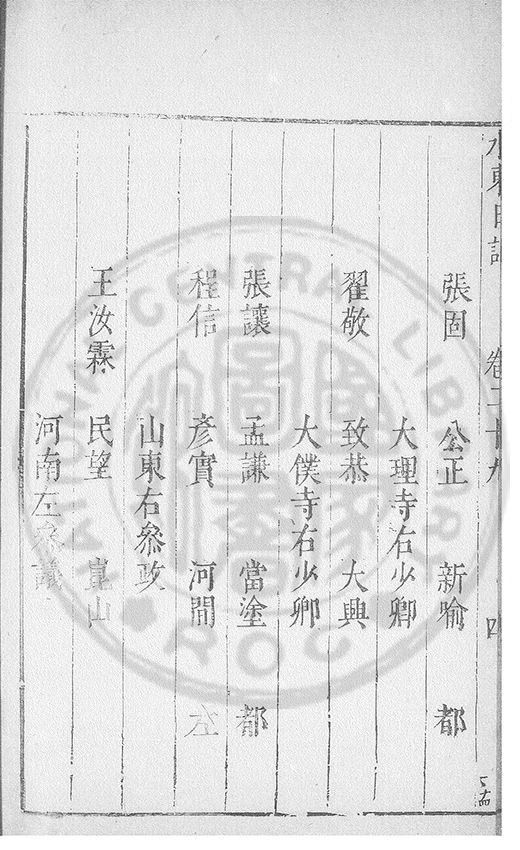 水東日記 卷二十九 四
張固 公正 新喻 都
大理寺右少卿
翟敬 致恭 大興
大僕寺右少卿
張讓 孟謙 當塗 都
程信 彥實 河間 左
山東右叅政
王汝霖 民望 崑山
河南左叅議
NATIONAL CENTRAL LIBRARY
R.O.C.